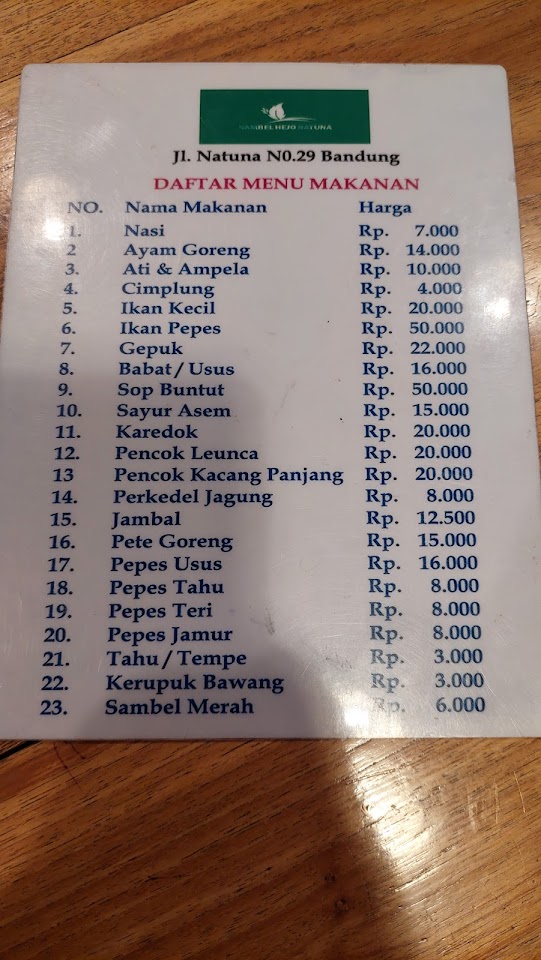 SAMBEL HEJO NATUNA
Jl. Natuna N0.29 Bandung
DAFTAR MENU MAKANAN
NO. Nama Makanan Harga
1. Nasi Rp. 7.000
2 Ayam Goreng Rp. 14.000
3. Ati & Ampela Rp. 10.000
4. Cimplung Rp. 4.000
5. Ikan Kecil Rp. 20.000
6. Ikan Pepes Rp. 50.000
7. Gepuk Rp. 22.000
8. Babat / Usus Rp. 16.000
9. Sop Buntut Rp. 50.000
10. Sayur Asem Rp. 15.000
11. Karedok Rp. 20.000
12. Pencok Leunca Rp. 20.000
13 Pencok Kacang Panjang Rp. 20.000
14. Perkedel Jagung Rp. 8.000
15. Jambal Rp. 12.500
16. Pete Goreng Rp. 15.000
17. Pepes Usus Rp. 16.000
18. Pepes Tahu Rp. 8.000
19. Pepes Teri Rp. 8.000
20. Pepes Jamur Rp. 8.000
21. Tahu / Tempe Rp. 3.000
22. Kerupuk Bawang Rp. 3.000
23. Sambel Merah Rp. 6.000